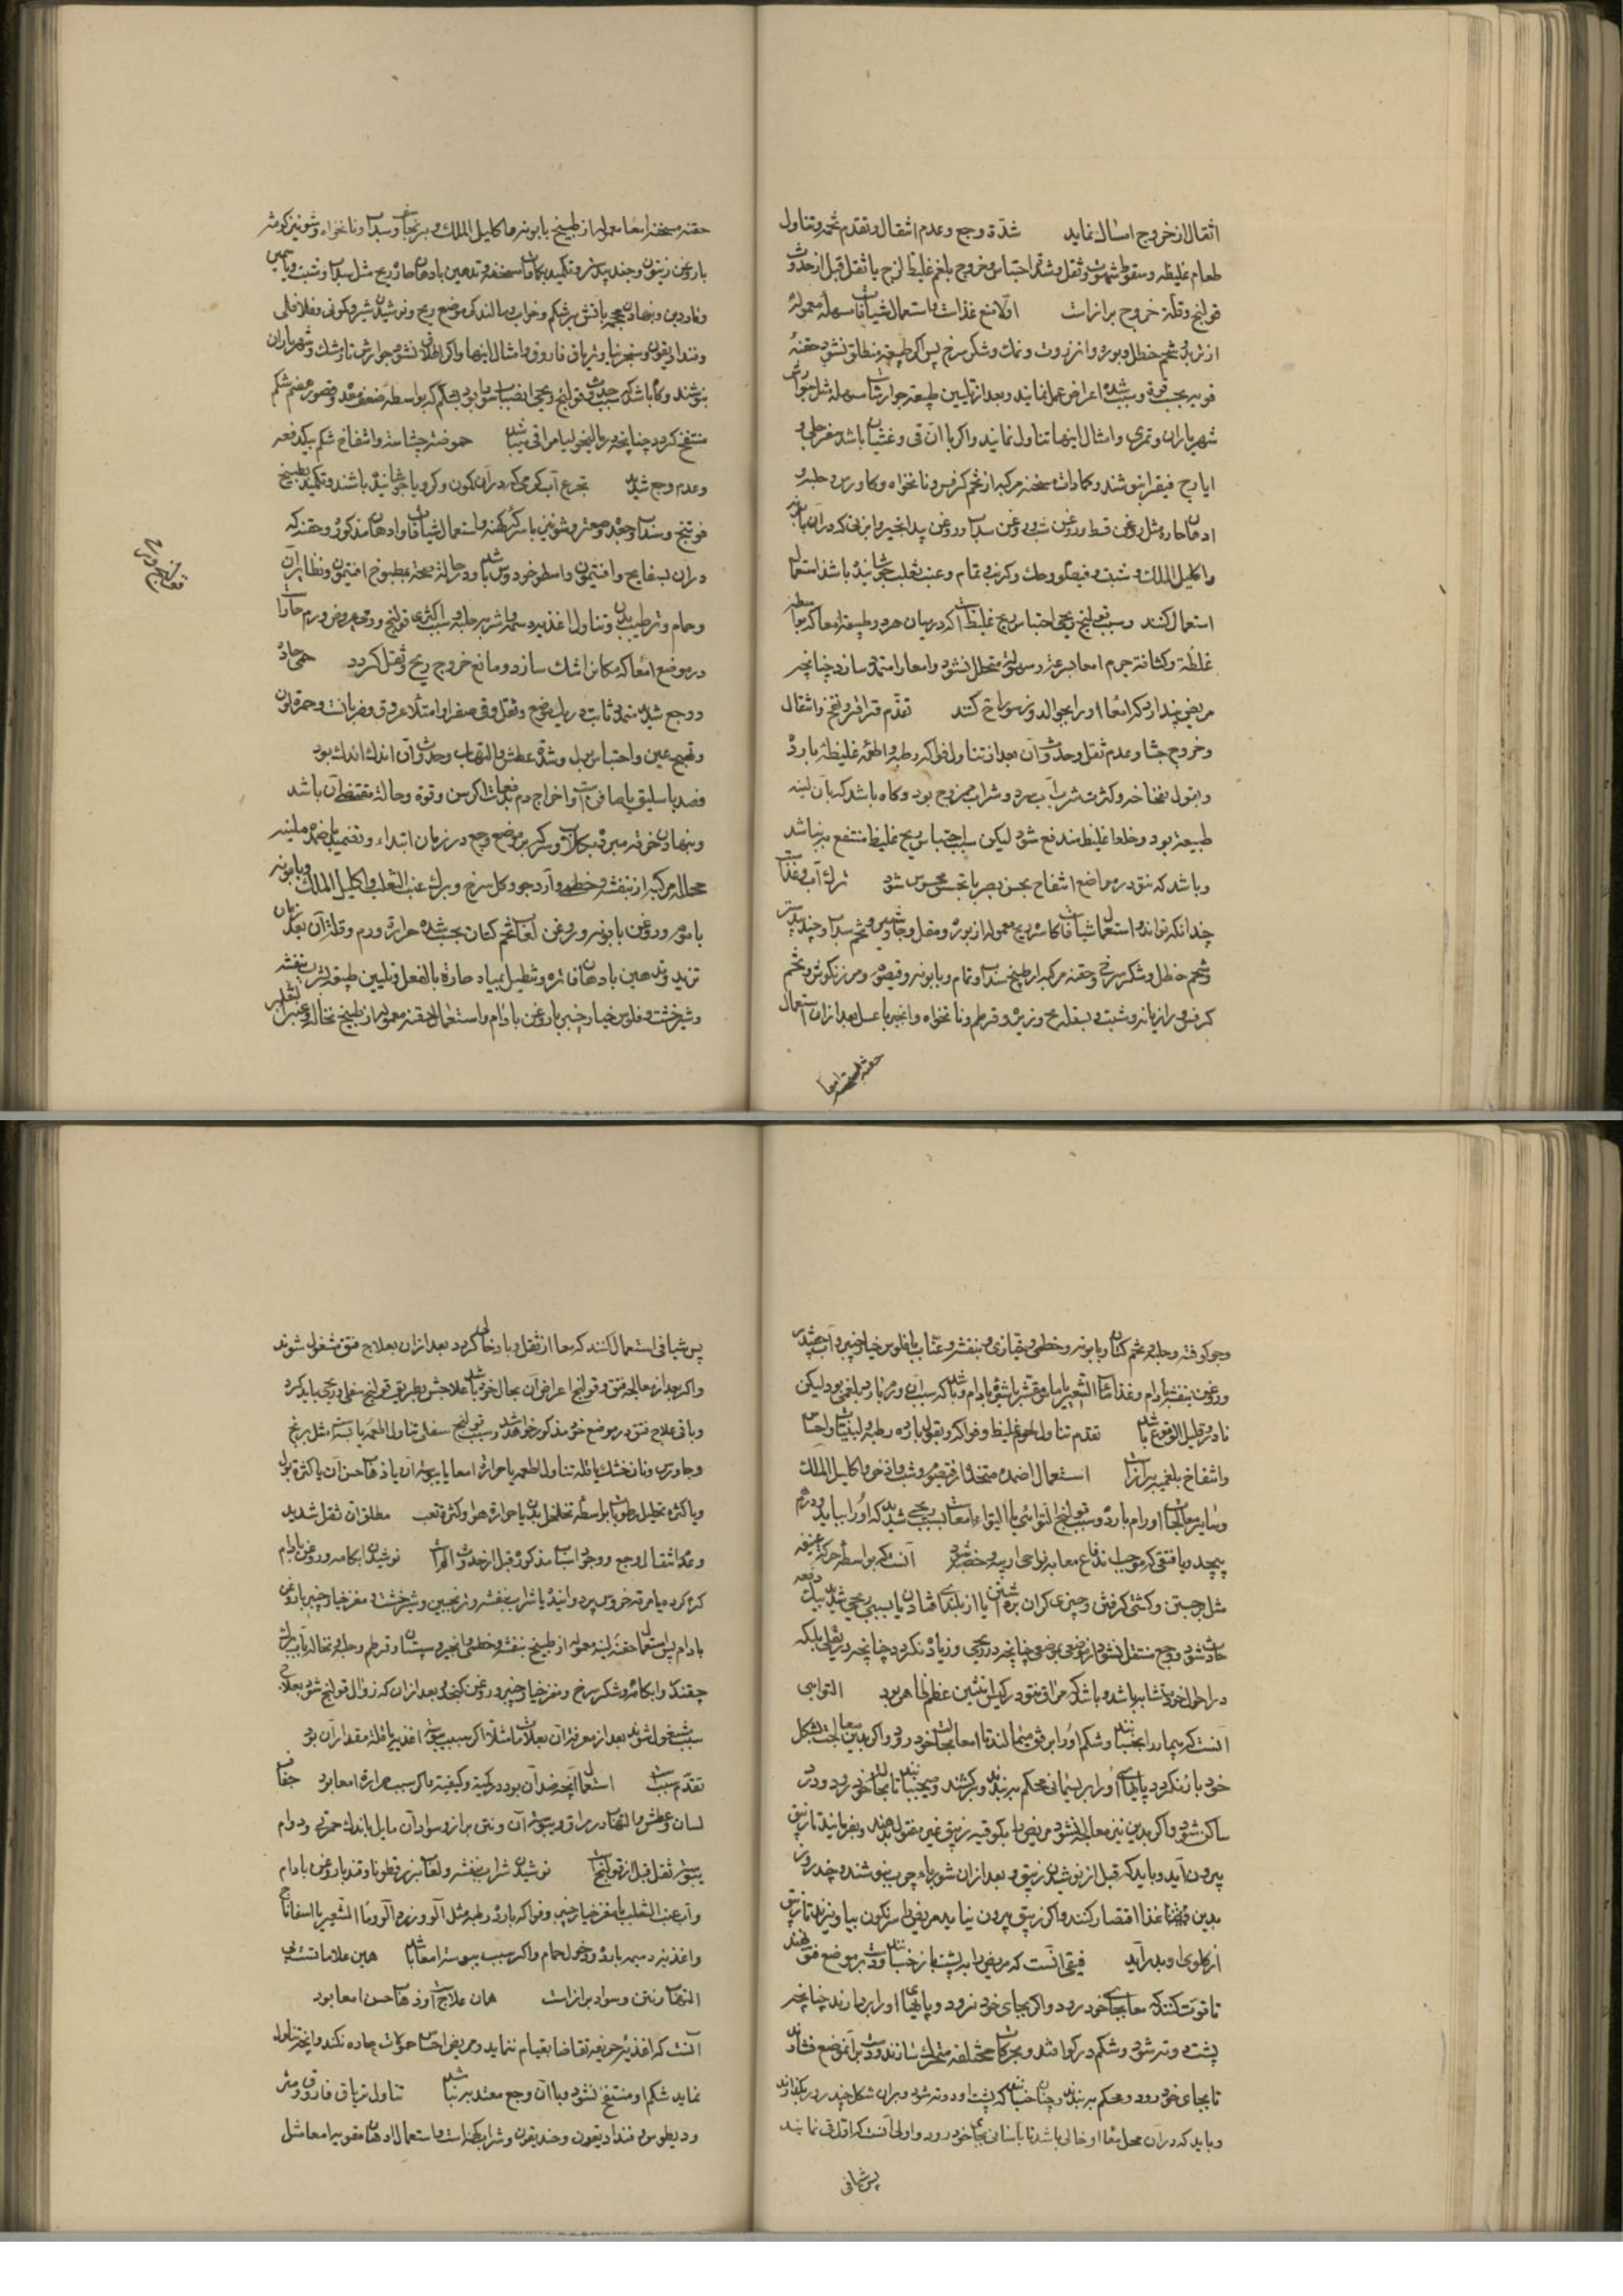 اثقال از خروج امساک نماید شدة وجع وعدم اثقال وتقدم تخمه وتناول
طعام غلیظه وسقوط شهوت وثقل وشدة احتباس وخروج بلغم غلیظ لزج با ثقل قبل از حدوث
قولنج وقلة خروج براز است اولا منع غذاست واستعمال شیافات مسهله معموله
از تربد وشحم حنظل وبوره وانزروت ونمک وشکر سرخ پس اگر طبیعة منطلق نشود حقنهٔ
قویه بحسب قوة وشدة اعراض عمل نمایند وبعد از تلیین طبیعة جوارشات مسهله مثل جوارش
شهریاران وتمری وامثال اینها تناول نمایند واگر با آن قی وغثیان باشد سفرجلی و
ایارج فیقرا بنوشند وکمادات مسخنه مرکبه از تخم کرفس ونانخواه وکاورس وحلبه و
ادهان حاره مثل روغن قسط وروغن شبت وروغن سداب وروغن بید انجیر وابزنی که در آن بابونه
واکلیل الملک وشبت وقیصوم وحسک وکرنب ونمام وعنب ثعلب جوشانیده باشند استعمال
استعمال کنند وسبب قولنج ریحی احتباس ریح غلیظ است که در میان هر دو طبقه امعا که بواسطه
غلظة وکثافة جرم امعا بسرعة وسهولة متحلل نشود وامعا را متمدد سازد چنانچه
مریض پندارد که امعا او را بجوالدوز سوراخ کنند تقدم قراقر ونفخ واثقال
وخروج جشا وعدم ثقل وحدوث آن بعد از تناول فواکه رطبه واطعمه غلیظهٔ بارده
وبقول نفاخه وکثرت شراب سرد وشراب ممزوج بود وگاه باشد که با آن لینه
طبیعة بود وخلطها غلیظ مندفع شود لیکن سبب احتباس ریح غلیظ منتفع به نباشد
وباشد که نتو در مواضع انتفاخ بحس بصر یا بحس لمس محسوس شود ترک آب وغذاست
چندانکه تواند واستعمال شیافات کاسره ریح معموله از بوره ومقل وجاوشیر وتخم سداب وجند بیدستر
وشحم حنظل وشکر سرخ وحقنه مرکبه از طبیخ سداب ونمام وبابونه وقیصوم ومرزنکوش وتخم
کرفس ورازیانه وشبت وبسفایج وزیره وقرطم ونانخواه وانجیر با عسل بعد از آن استعمال
حقنه مسخنه امعا
حقنه مسخنه امعا معموله از طبیخ بابونه واکلیل الملک وبرنجاسف وسداب ونانخواه وشونیز کوفته
با روغن زیتون وجند بیدستر وتکمید بکمادات مسخنه وتدهین بادهان حاره ریح مثل سداب وشبت ویاسمین
وناردین ونهادن محجمه با آتش بر شکم وخواب ومالیدن موضع ریح ونوشیدن شیر وکمونی وفلافلی
وفندادیقون وسنجرنیا وتریاق فاروق وامثال اینها واگر اطلاق نشود جوارش نارمشک وشهریاران
بنوشند وگاه باشد که سبب حدوث قولنج ریحی انصباب سودا بود بشکم که بواسطه ضعف معده وقصور هضم شکم
منتفخ گردد چنانچه در مالیخولیا مراقی میباشد حموضة جشاست وانتفاخ شکم بیکدفعه
وعدم وجع شدید تجرع آب گرمی که در آن کمون وکرویا جوشانیده باشند وتکمید بطبیخ
فوتنج وسداب وجعده وصعتر وشونیز با سرکه کهنه واستعمال شیافات وادهان مذکوره وحقنه که
در آن بسفایج وافتیمون واسطوخودوس باشد ودر حالة صحة مطبوخ افتیمون ونظایر آن
وحمام وترطیب بدن وتناول اغذیه دسمه واشربه حلبه وسبب اکثری قولنج ورمی عروض ورم حار است
در موضع امعا که مکانرا تنگ سازد ومانع خروج ریح وثقل گردد حمی حاده
ووجع شدید متمدد ثابت در یک موضع وثقل وقی صفرا وامتلاء عروق وضربان وحمرة لون
وتهیج عین واحتباس بول وشدة عطش والتهاب وحدوث آن اندک اندک بود
فصد باسلیق یا صافن است واخراج دم بدفعات اگر سن وقوة وحالة مقتضی آن باشد
ونهادن خرقه مبرده بگلاب وسرکه بر موضع وجع در زمان ابتداء وتضمید باضمده ملینه
محلله مرکبه از بنفشه وخطمی وآرد جو وگل سرخ وبرگ عنب الثعلب واکلیل الملک وبابونه
با موم وروغن بابونه وروغن لعاب تخم کتان بحسب شدة حرارة ورم وقلة آن بعد زمان
تزید وتدهین بادهان فاتره وتنطیل بمیاه حاره بالفعل وتلیین طبیعة بشراب بنفشه
وشیرخشت وفلوس خیارچنبر با روغن بادام واستعمال حقنه معموله از طبیخ نخاله وعنب الثعلب
وجو کوفته وحلبه وتخم کتان وبابونه وخطمی وخبازی وبنفشه وعناب با فلوس خیارچنبر وآب چقندر
وروغن بنفشه بادام وغذا ماء الشعیر یا ماش مقشر با شیره بادام وباشد که سبب آن ورم بارد بلغمی بود لیکن
نادر وقلیل الوقوع باشد تقدم تناول لحوم غلیظ وفواکه وبقول بارده رطبه ولبنیات واحساس
وانتفاخ بلغمیه براز است استعمال اضمده متخذه از قیصوم وشبت واذخر واکلیل الملک
وسایر معالجات اورام بارده وسبب قولنج التوائی یا التواء امعا بسبب ریحی شدید که او را بیاید ودرهم
پیچد ویا فتقی که موجب اندفاع معا بنواحی اربیه وخصیه شود آنست که بواسطه حرکة عنیفه
مثل برجستن وکشتی گرفتن وچیزی گران برداشتن یا از بلندی افتادن یا بسبب ریحی شدید بیکدفعه
حادث شود ووجع منتقل نشود از موضعی بموضعی چنانچه در ریحی وزیاد نگردد چنانچه در ثقلی بلکه
در احوال خود متشابه باشد وباشد که مراق نتو در کیس انثیین عظم ظاهر بود التوایی
آنست که بیمار را بخسبانند وشکم او را برفق میمالند تا امعا بجای خود رود واگر بدین معالجت بشکل
خود باز نگردد پایهای او را بریسمانی محکم بر بندند وبرکشند ومیجنبانند تا بجای خود رود ودرد
ساکن شود واگر بدین نیز معالجه نشود مریض را یکوقیه زیبق غیر مقتول بدهند وبفرمایند تا زیبق
بیرون آید وباید که قبل از نوشیدن زیبق وبعد از آن شورباء چرب بنوشند وچند روز
بدین غذا اقتصار کنند واگر زیبق بیرون نیاید مریض را سرنگون بیاویزند تا زیبق
از گلوی او بدر آید فتقی آنست که مریض را به پشت باز خسبانند ودست بر موضع فتق نهند
تا قوت کنند که معا بجای خود رود واگر بجای خود نرود وپایهای او را بردارند چنانچه
پشت دوته شود وشکم در گو افتد وبحرکات مختلفه متحرک سازند ودست بر آن موضع فشارند
تا بجای خود رود ومحکم بر بندند وچنان خسبانند که پشت او دوته شود وبران شکل چند روز بگذارند
وباید که در آن محل معا او خالی باشد تا بآسانی بجای خود رود واولی آنست که اول قی نمایند
پس شیافی
پس شیافی استعمال کنند که معا از ثقل وباد خالی گردد بعد از آن بعلاج فتق مشغول شوند
واگر بعد از معالجه فتق وقولنج اعراض آن بحال خود باشد علاجش بطریق قولنج ثفلی وریحی باید کرد
وباقی علاج فتق در موضع خود مذکور خواهد شد وسبب قولنج ثفلی تناول اطعمه یابسه مثل برنج
وجاورس ونان خشک یا قلة تناول اطعمه یا حرارة امعا یا یبوسة آن یا ذهاب حس آن یا کثرة بول
ویا کثرة تحلیل رطوبات بواسطه تخلخل بدن یا حرارة هوا وکثرة تعب مطلقا آن ثقل شدید
وعدم اثقال ووجع ووجود اسباب مذکوره قبل از حدوث الم است نوشیدن ابکامه وروغن بادام
گرم کرده یا مرقه خروس پیر ولینه یا شراب بنفشه وترنجبین وشیرخشت ومغز خیارچنبر با روغن
بادام پس استعمال حقنه لینه معموله از طبیخ بنفشه وخطمی وانجیر وسپستان وقرطم وحلبه ونخاله با آب برگ
چقندر وابکامه وشکر سرخ ومغز خیارچنبر وروغن کنجد وبعد از آن که زوال قولنج شود بعلاج
سبب مشغول شوند بعد از معرفة آن بعلامات مثلا اگر سبب یبوسة اغذیه یا قلة مقدار آن بود
تقدم سبب است استعمال آنچه ضد آن بود در کمیة وکیفیة واگر سبب حرارة امعا بود جفاف
لسان وعطش والتهاب در مراق ویبوسة آن ونتن براز وسواد آن مایل باندک حمرتی ودوام
یبوسة ثقل قبل از قولنج است نوشیدن شراب بنفشه ولعاب بزرقطونا وقند با روغن بادام
وآب عنب الثعلب با مغز خیارچنبر وفواکه بارده رطبه مثل آلو وزردآلو وماء الشعیر با اسفاناخ
واغذیه دسمه بارده ودخول حمام واگر سبب یبوسة امعا باشد همین علامات بی
التهاب ونتن وسواد براز است همان علاج است واگر ذهاب حس امعا بود
آنست که اغذیه حریفه تقاضا بقیام ننماید ومریض احساس حمولات حاده نکند وآنچه تناول
نماید شکم او منتفخ نشود وبا آن وجع معتد به نباشد تناول تریاق فاروق ومثر
ودیطوس وفندادیقون وحندیقون وشراب کهنه است واستعمال ادهان مقویه امعا مثل